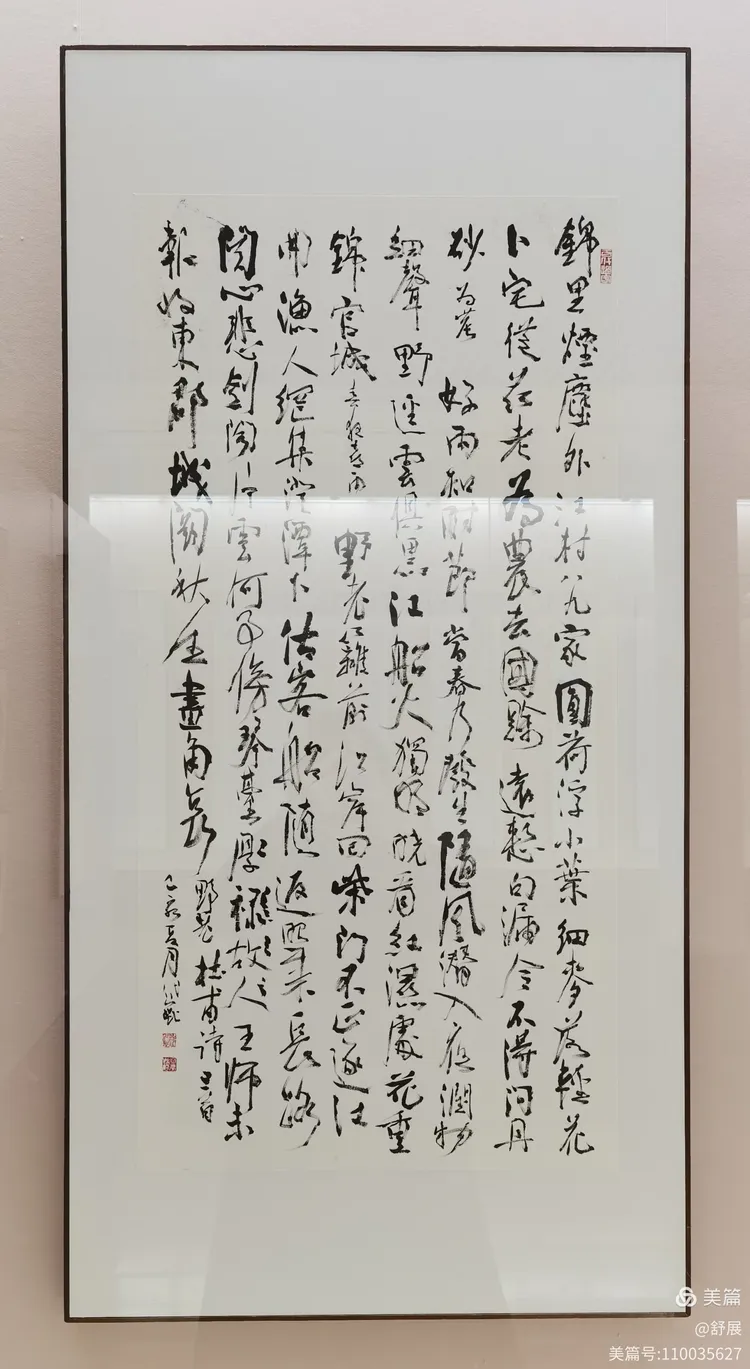 錦里煙塵外江村八九家圓荷浮小葉細麥落輕花
卜宅從茲老為農去國賒遠慙句漏令不得問丹
砂為農好雨知時節當春乃發生隨風潛入夜潤物
細聲野逕雲俱黑江船火獨明曉看紅濕處花重
錦官城春夜喜雨野老籬前江岸回柴門不正逐江
開漁人網集澄潭下估客船隨返照來長路
關心悲劍閣片雲何事傍琴臺王師未
報收東郡城闕秋生畫角哀野老杜甫詩三首
己亥夏月
美篇
@舒展
美篇号:110035627